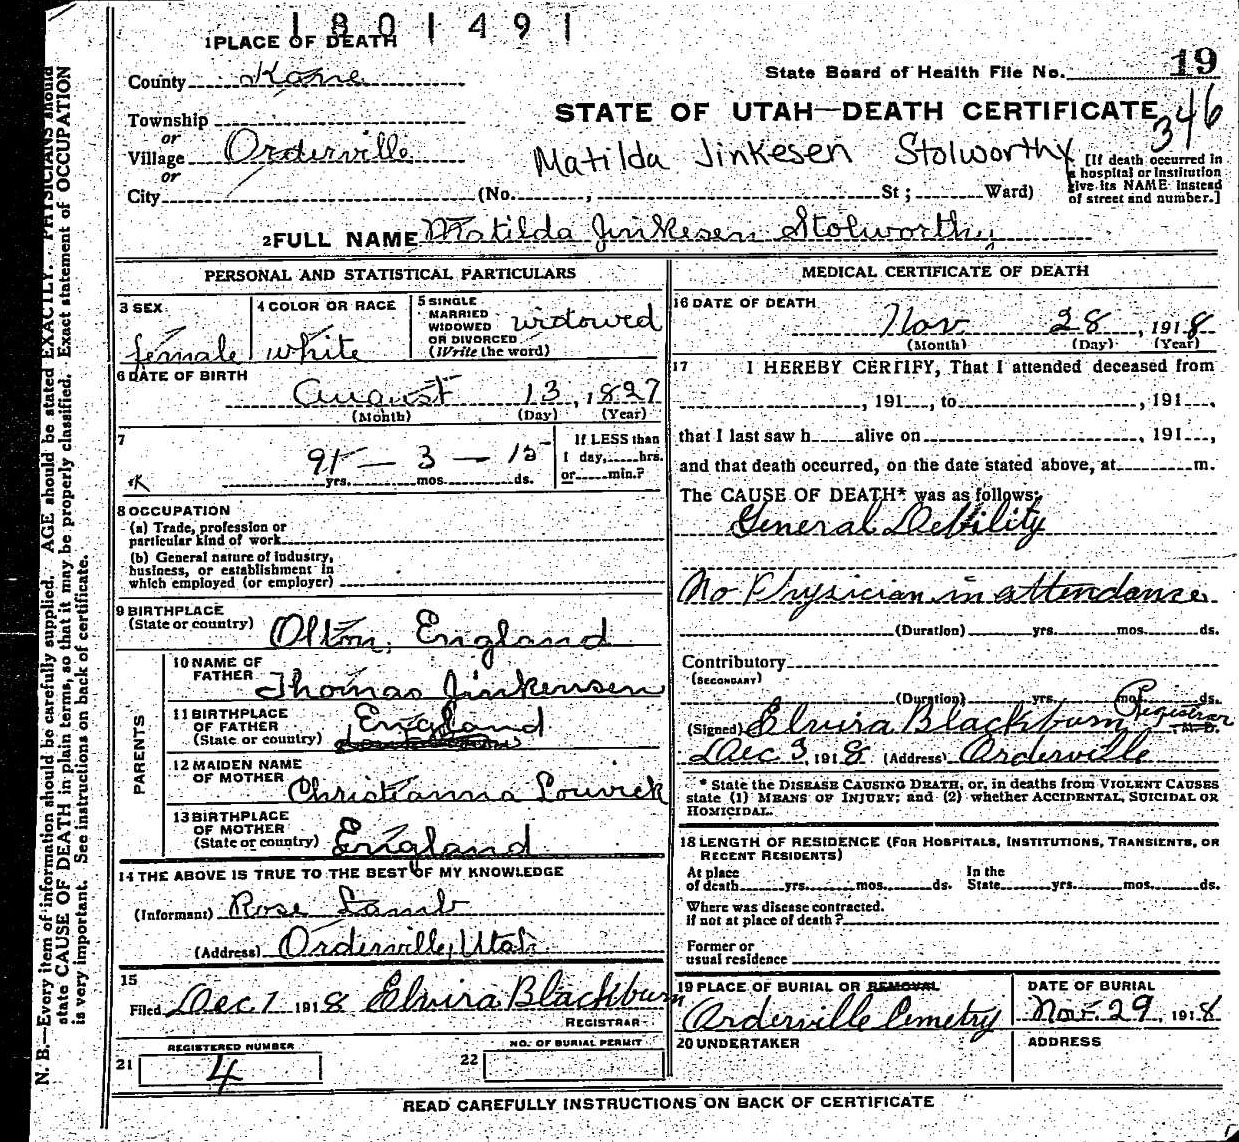 1801491
1 PLACE OF DEATH
County Kane
State Board of Health File No. 19
346
STATE OF UTAH—DEATH CERTIFICATE
Township
or
Village Orderville
or
City
Matilda Jinkesen Stolworthy
(No. , St; Ward)
[If death occurred in a hospital or institution give its NAME instead of street and number.]
2 FULL NAME Matilda Jinkesen Stolworthy
PERSONAL AND STATISTICAL PARTICULARS
3 SEX female
4 COLOR OR RACE white
5 SINGLE MARRIED WIDOWED OR DIVORCED (Write the word) widowed
6 DATE OF BIRTH
August 13, 1827
(Month) (Day) (Year)
7
91 — 3 — 15
yrs. mos. ds.
If LESS than 1 day, hrs. or min.?
8 OCCUPATION
(a) Trade, profession or particular kind of work
(b) General nature of industry, business, or establishment in which employed (or employer)
9 BIRTHPLACE (State or country) Olton, England
PARENTS
10 NAME OF FATHER Thomas Jinkensen
11 BIRTHPLACE OF FATHER (State or country) England
12 MAIDEN NAME OF MOTHER Christianna Louvick
13 BIRTHPLACE OF MOTHER (State or country) England
14 THE ABOVE IS TRUE TO THE BEST OF MY KNOWLEDGE
(Informant) Rose Lamb
(Address) Orderville, Utah
15
Filed Dec 1 1918 Elvira Blackburn
REGISTRAR
REGISTERED NUMBER
21 4
NO. OF BURIAL PERMIT
22
MEDICAL CERTIFICATE OF DEATH
16 DATE OF DEATH
Nov 28, 1918
(Month) (Day) (Year)
17 I HEREBY CERTIFY, That I attended deceased from
, 191 , to , 191 ,
that I last saw h alive on , 191 ,
and that death occurred, on the date stated above, at m.
The CAUSE OF DEATH* was as follows:
General Debility
No Physician in attendance
(Duration) yrs. mos. ds.
Contributory
(SECONDARY)
(Duration) yrs. mos. ds.
(Signed) Elvira Blackburn Registrar M. D.
Dec 3, 1918 (Address) Orderville
* State the DISEASE CAUSING DEATH, or, in deaths from VIOLENT CAUSES
state (1) MEANS OF INJURY; and (2) whether ACCIDENTAL, SUICIDAL OR
HOMICIDAL.
18 LENGTH OF RESIDENCE (FOR HOSPITALS, INSTITUTIONS, TRANSIENTS, OR
RECENT RESIDENTS)
At place of death yrs. mos. ds. In the State yrs. mos. ds.
Where was disease contracted,
If not at place of death?
Former or
usual residence
19 PLACE OF BURIAL OR REMOVAL
Orderville Cemetry
DATE OF BURIAL
Nov. 29, 1918
20 UNDERTAKER
ADDRESS
READ CAREFULLY INSTRUCTIONS ON BACK OF CERTIFICATE
N. B.—Every item of information should be carefully supplied. AGE should be stated EXACTLY. PHYSICIANS should
state CAUSE OF DEATH in plain terms, so that it may be properly classified. Exact statement of OCCUPATION
is very important. See instructions on back of certificate.